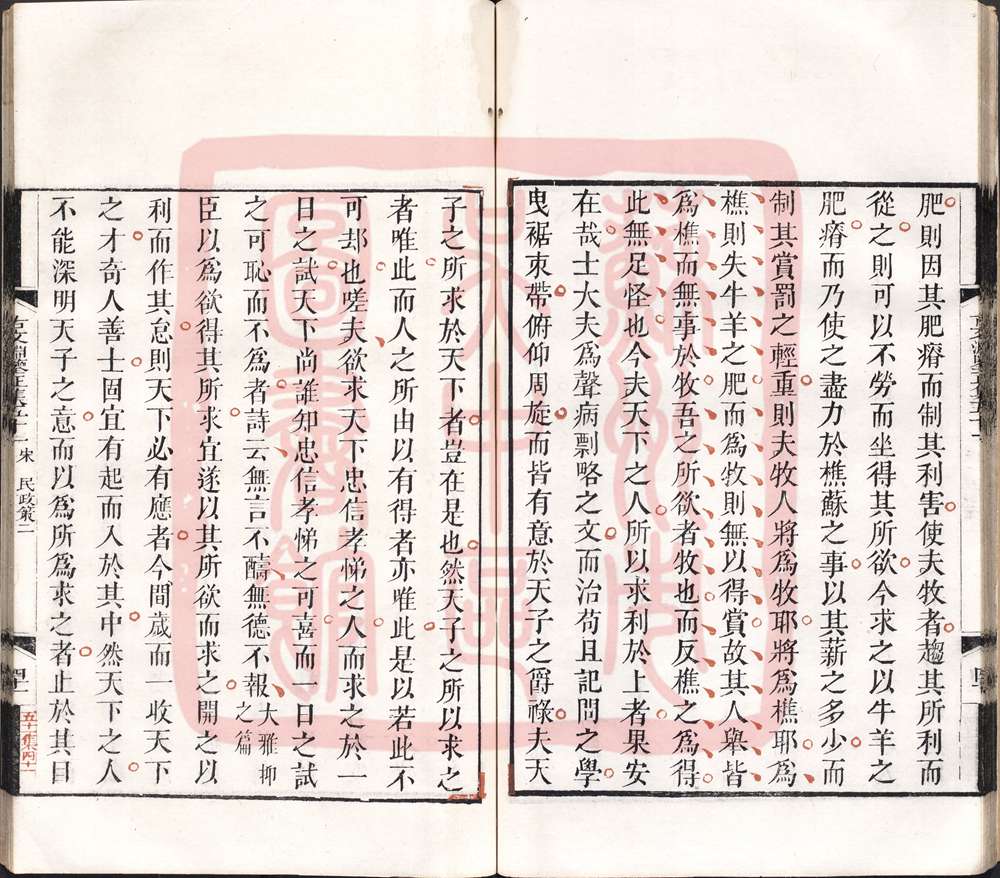 肥則因其肥瘠而制其利害使夫牧者趨其所利而
從之則可以不勞而坐得其所欲今求之以牛羊之
肥瘠而乃使之盡力於樵蘇之事以其薪之多少而
制其賞罰之輕重則夫牧人將爲牧耶將爲樵耶爲
樵則失牛羊之肥而爲牧則無以得賞故其人舉皆
爲樵而無事於牧吾之所欲者牧也而反樵之爲得
此無足怪也今夫天下之人所以求利於上者果安
在哉士大夫爲聲病剽略之文而治苟且記問之學
曳裾束帶俯仰周旋而皆有意於天子之爵祿夫天
子之所求於天下者豈在是也然天子之所以求之
者唯此而人之所由以有得者亦唯此是以若此不
可却也嗟夫欲求天下忠信孝悌之人而求之於一
日之試天下尚誰知忠信孝悌之可喜而一日之試
之可恥而不爲者詩云無言不醻無德不報大雅抑之篇
臣以爲欲得其所求宜遂以其所欲而求之開之以
利而作其怠則天下必有應者今間歲而一收天下
之才奇人善士固宜有起而入於其中然天下之人
不能深明天子之意而以爲所爲求之者止於其目
古文淵鑒正集五十一 宋 民政策二
五十集四十